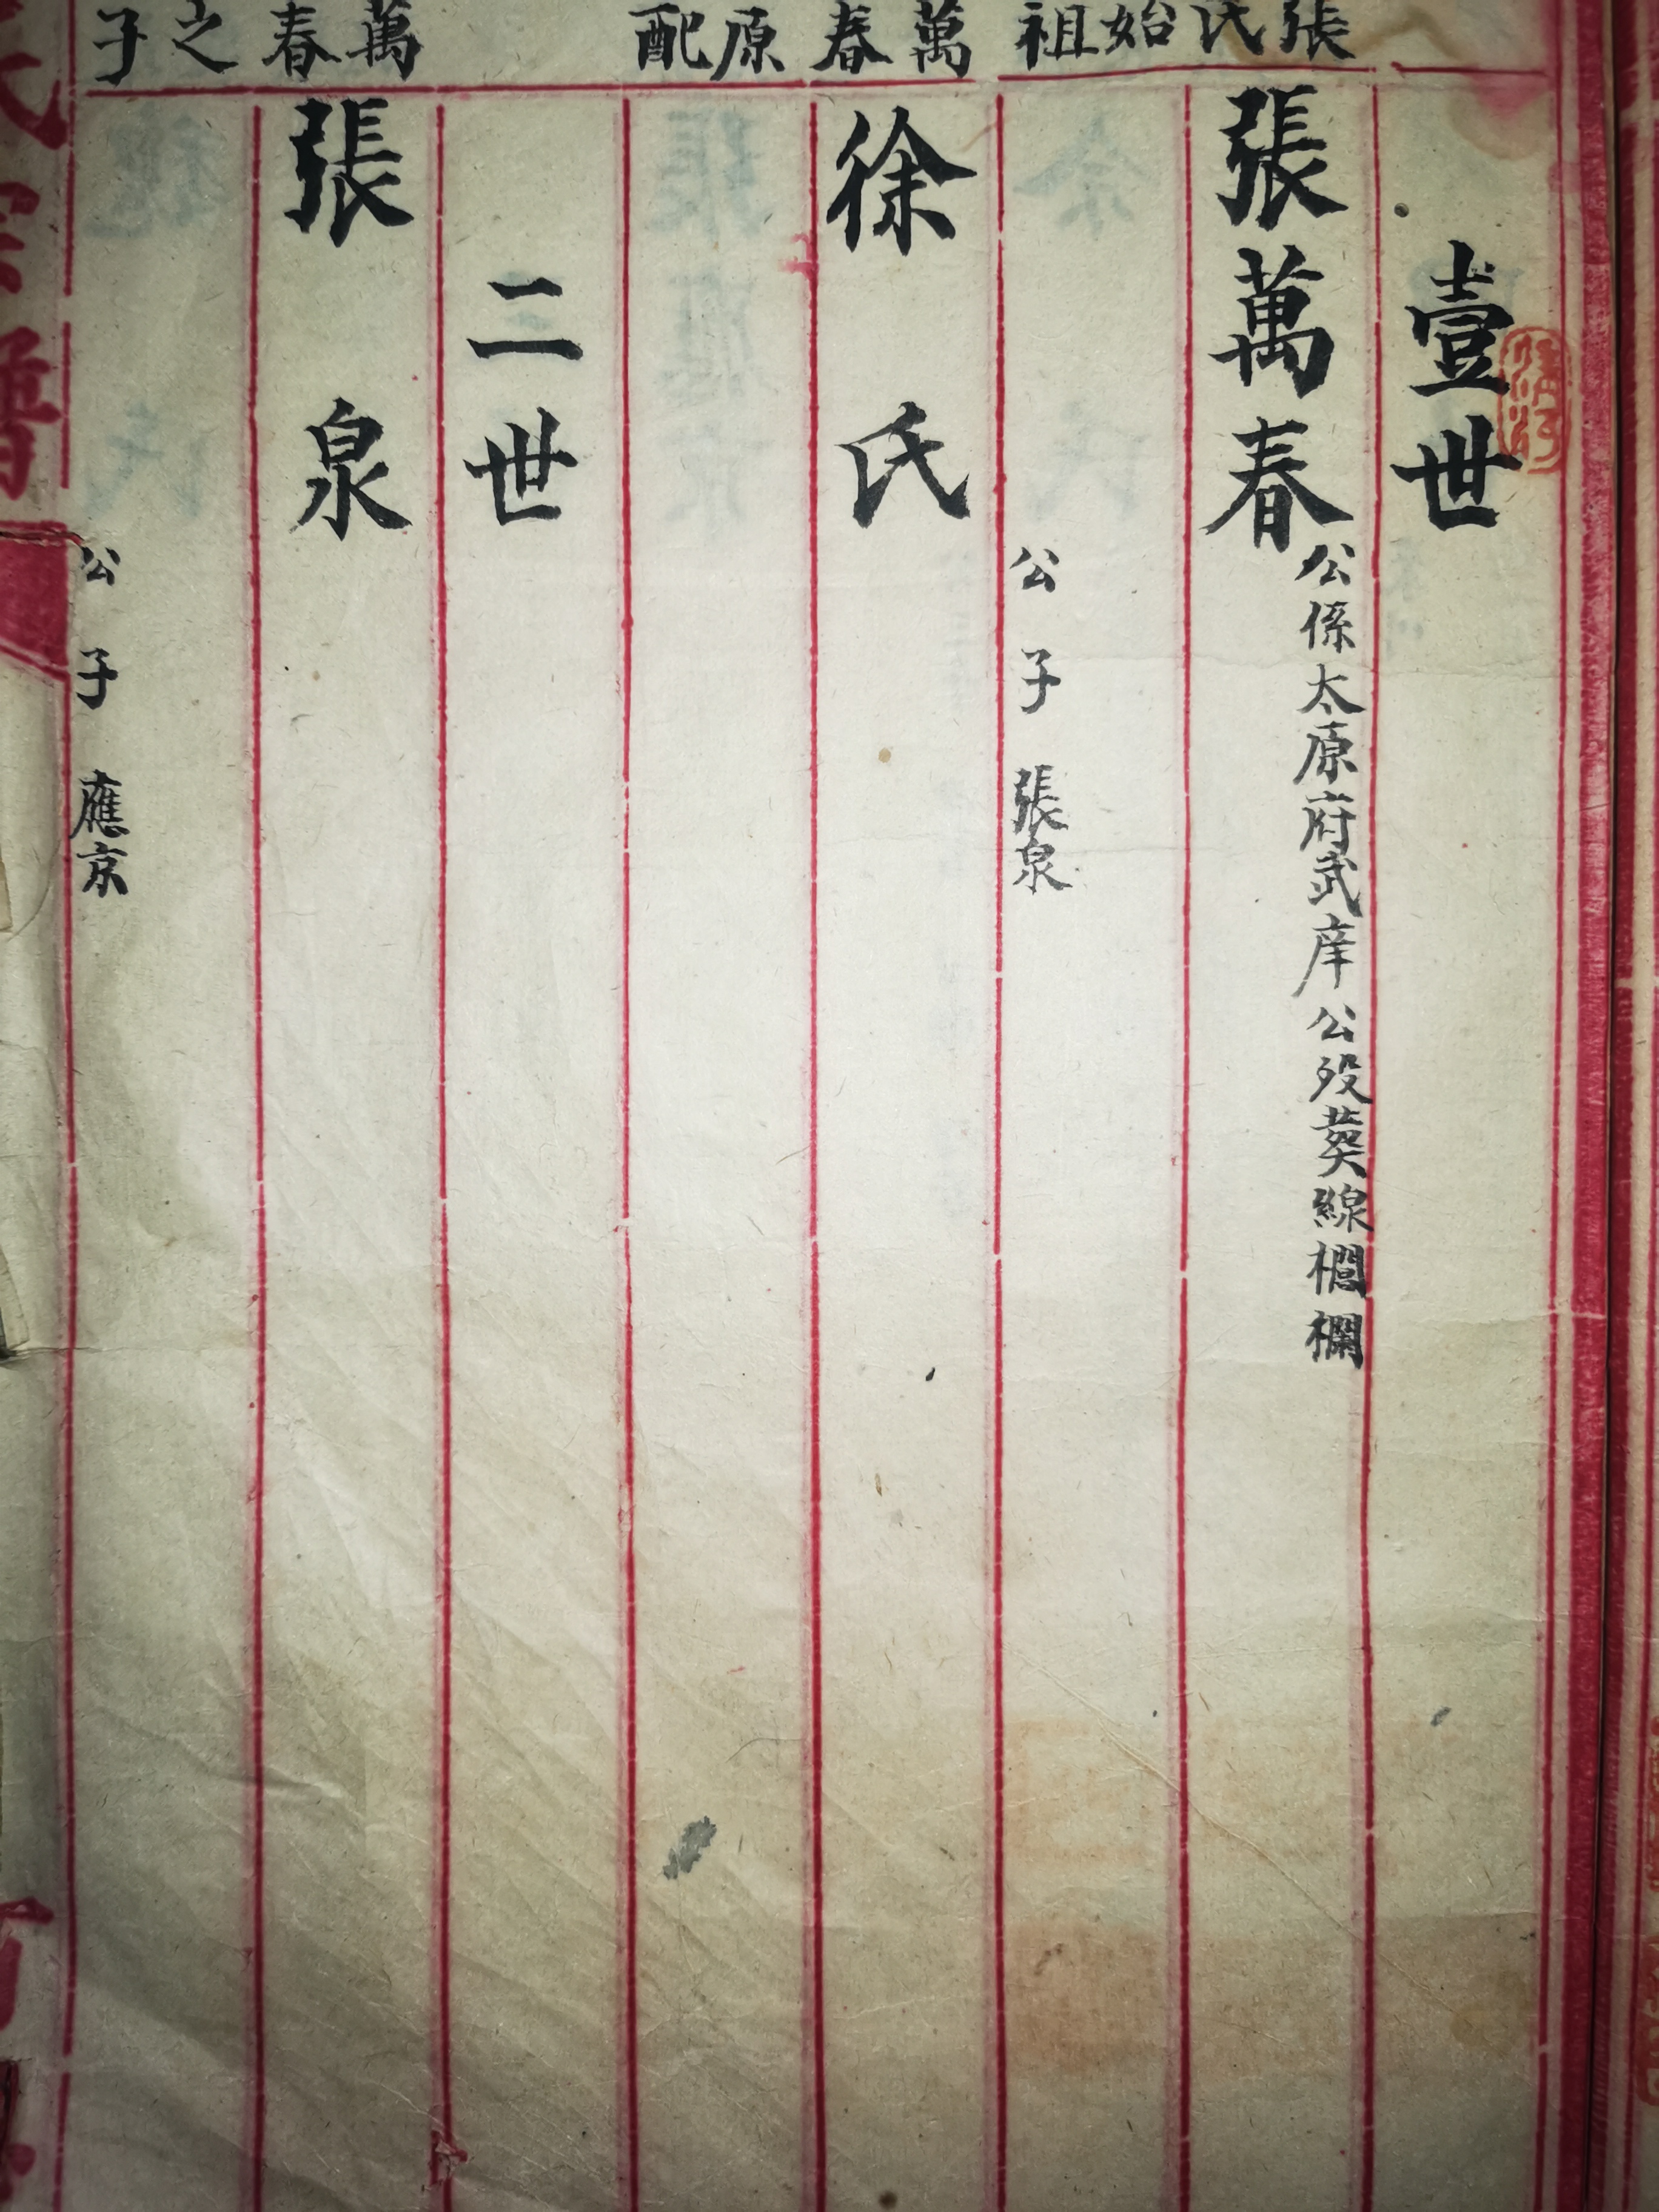 張氏始祖
萬春原配
萬春之子
壹世
張萬春
公係太原府武庠公歿葬線橺欄
徐氏
公子 張泉
二世
張泉
公子 應京